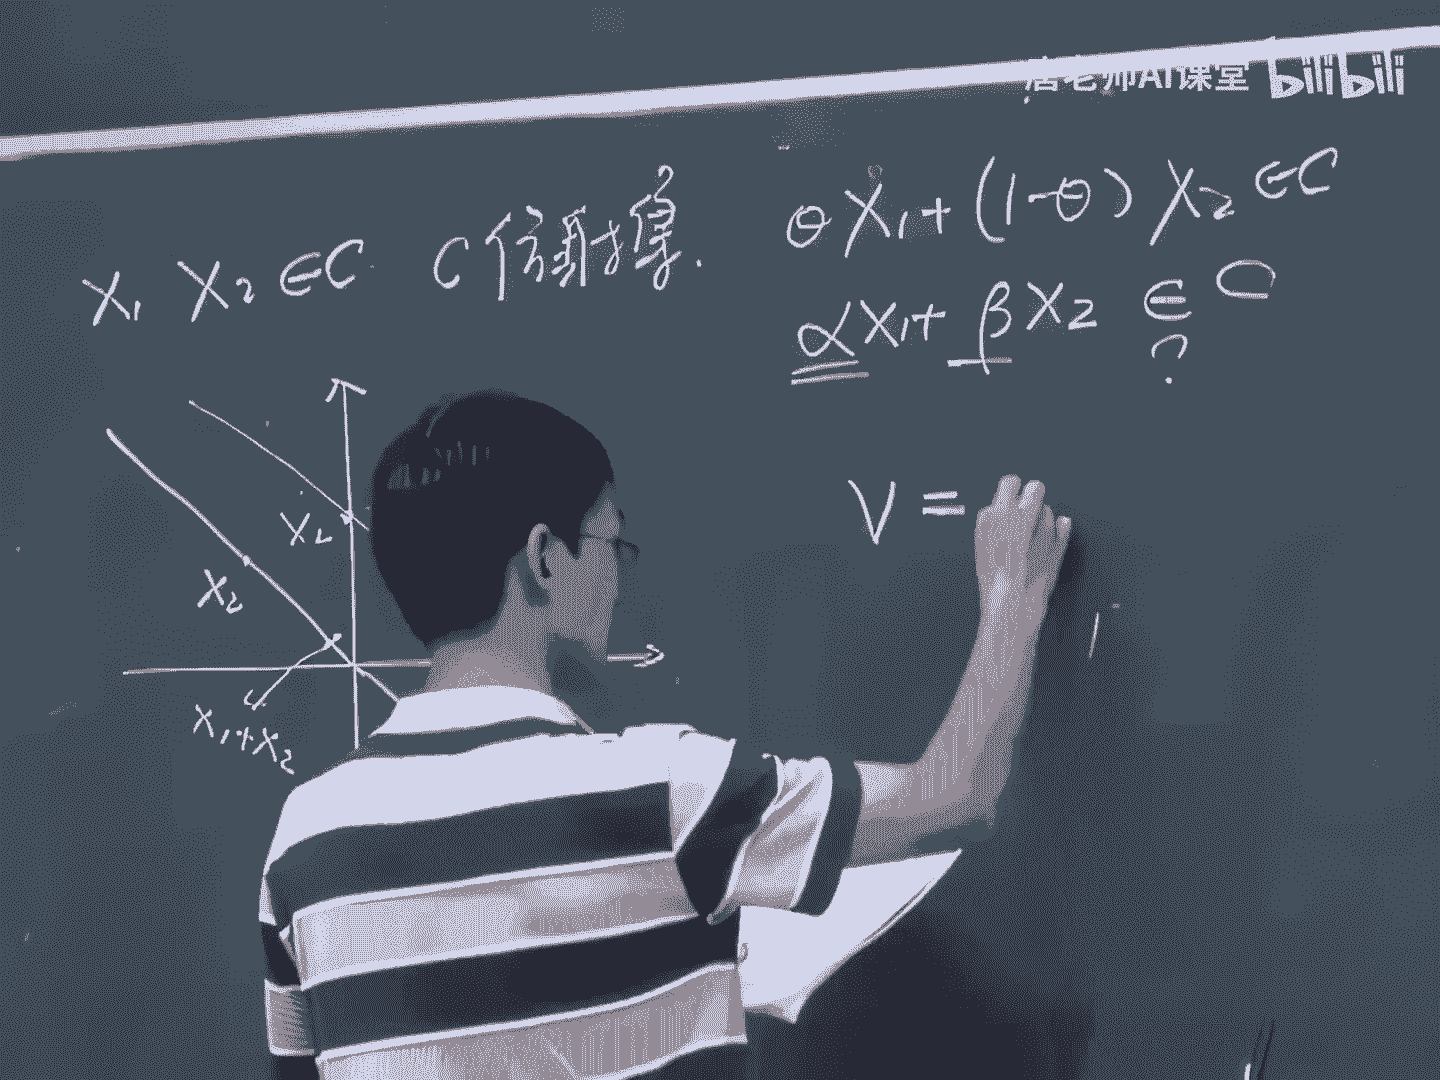 唐老师AI课堂 bilibili
X₁ X₂ ∈C C仿射集.
θX₁+(1-θ)X₂∈C
αX₁+βX₂ ∈ C
?
X₂
X₂
X₁+X₂
V =